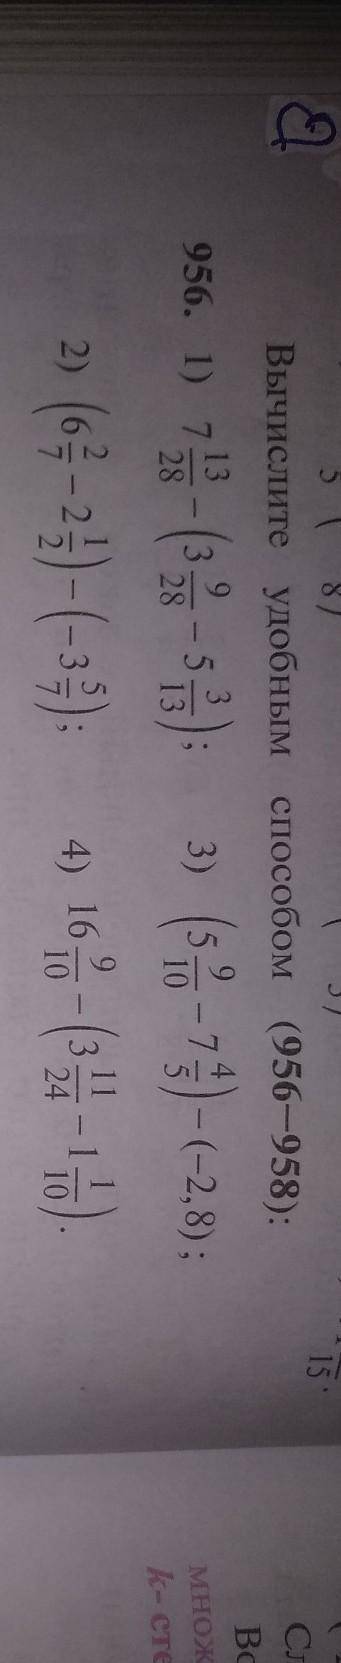 5 ( 8)
15.
Вычислите удобным способом (956—958):
956. 1) 7 13/28 − (3 9/28 − 5 3/13); 3) (5 9/10 − 7 4/5) − (−2,8);
2) (6 2/7 − 2 1/2) − (−3 5/7); 4) 16 9/10 − (3 11/24 − 1 1/10).
множ
k-сте